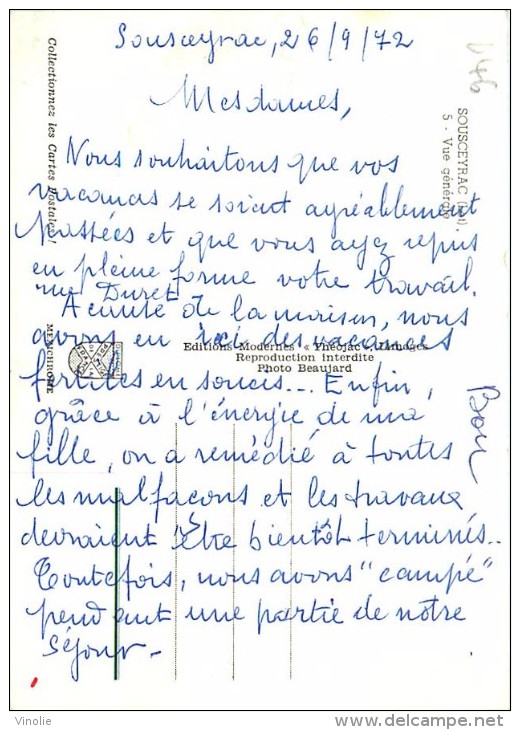 Sousceyrac, 26/9/72
Mesdames,
Nous souhaitons que vos
vacances se soient agréablement
passées et que vous ayez repris
en pleine forme votre travail
rue Duret.
A cause de la maison, nous
avons eu ici des vacances
fertiles en soucis... Enfin,
grâce à l'énergie de ma
fille, on a remédié à toutes
les malfaçons et les travaux
devraient être bientôt terminés..
Toutefois, nous avons "campé"
pendant une partie de notre
séjour -
Bon
Collectionnez les Cartes Postales !
MEXICHROME
SOUSCEYRAC (Lot).
5 - Vue générale
Editions Modernes « Théojac » Limoges
Reproduction interdite
Photo Beaujard
Vinolie
www.delcampe.net